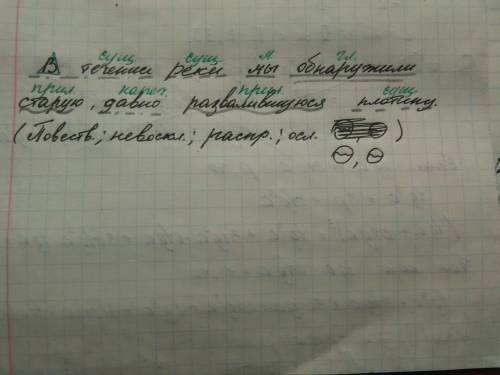 сущ. сущ. м. гл.
В течении реки мы обнаружили
прил. нареч. прил. сущ.
старую, давно развалившуюся плотину.
(Повеств.; невоскл.; распр.; осл. )